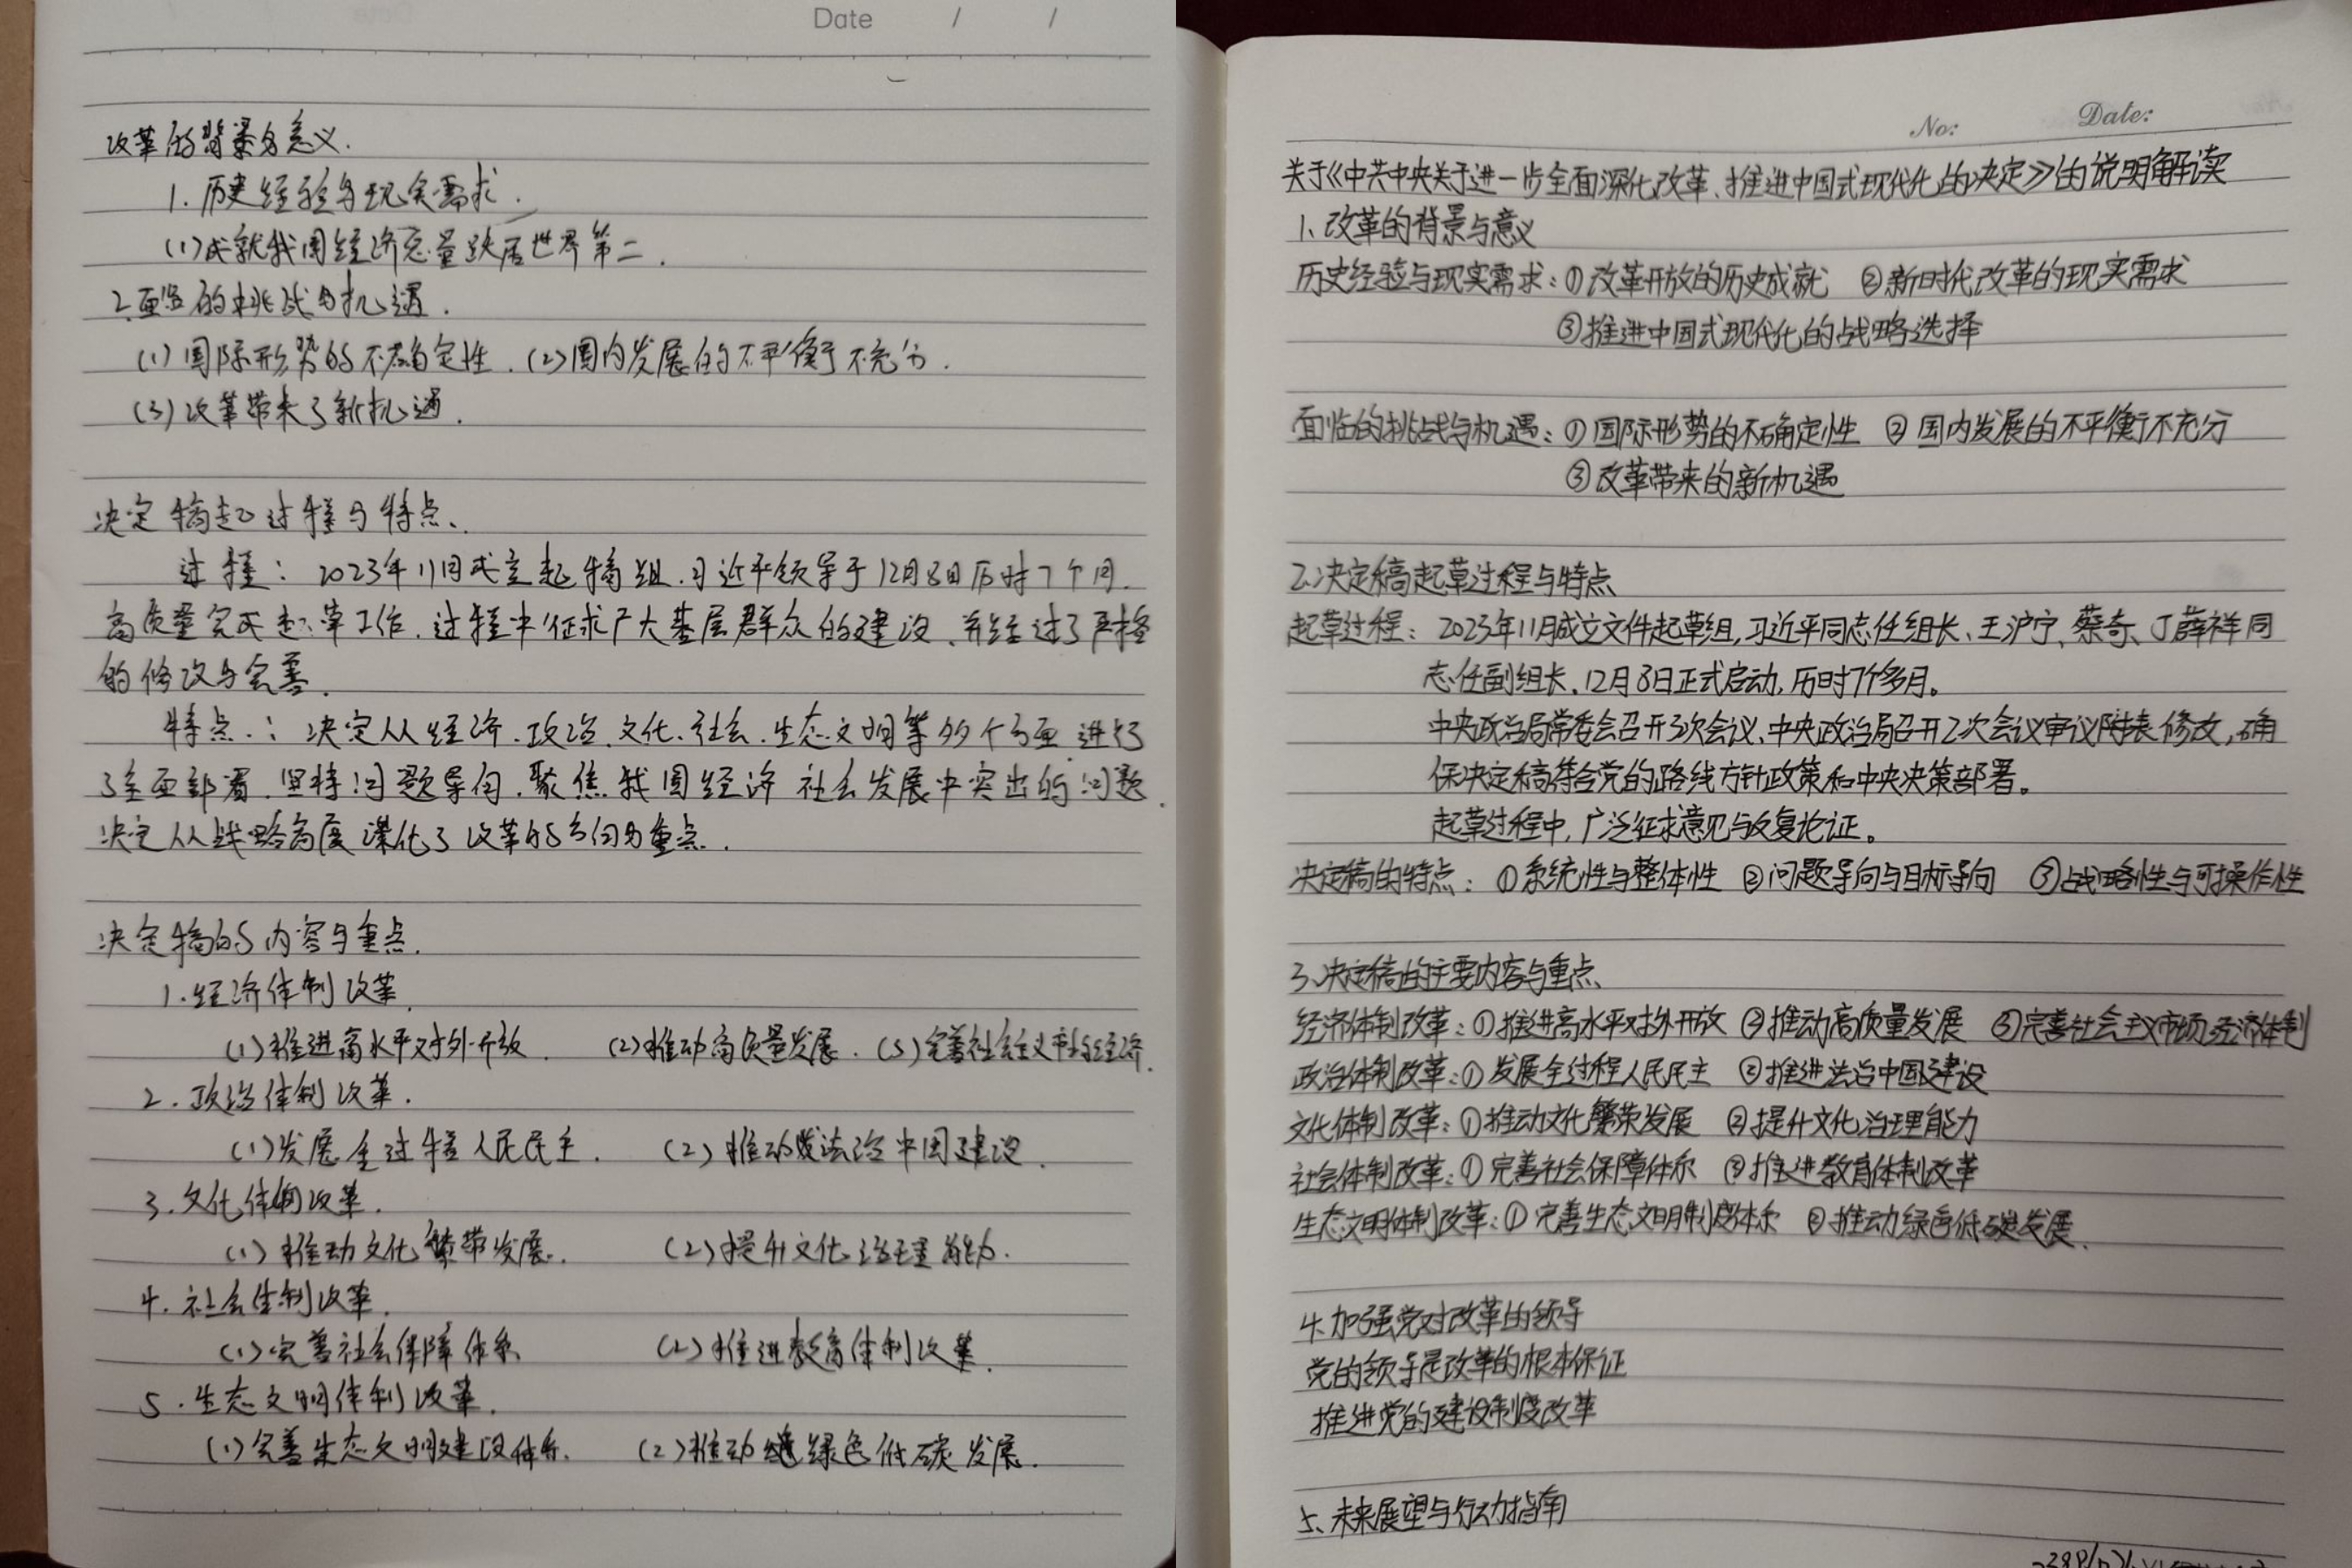 Date / /
改革的背景与意义.
1. 历史经验与现实需求.
(1)成就我国经济总量跃居世界第二.
2.面临的挑战与机遇.
(1)国际形势的不确定性.(2)国内发展的不平衡不充分.
(3)改革带来了新机遇.
决定稿起过程与特点、
过程：2023年11月成立起稿组.习近平领导于12月8日历时7个月.
高质量完成起草工作.过程中征求广大基层群众的建设、并经过了严格
的修改与完善.
特点.：决定从经济.政治.文化.社会.生态文明等多个方面进行
了全面部署.坚持问题导向.聚焦我国经济社会发展中突出的问题.
决定从战略高度深化了改革的方向与重点.
决定稿的内容与重点.
1.经济体制改革.
(1)推进高水平对外开放. (2)推动高质量发展.(3)完善社会主义市场经济.
2.政治体制改革.
(1)发展全过程人民民主. (2)推动法治中国建设.
3.文化体制改革.
(1)推动文化繁荣发展. (2)提升文化治理能力.
4.社会体制改革.
(1)完善社会保障体系 (2)推进教育体制改革.
5.生态文明体制改革.
(1)完善生态文明建设体系. (2)推动绿色低碳发展.
No: Date:
关于《中共中央关于进一步全面深化改革、推进中国式现代化的决定》的说明解读
1、改革的背景与意义
历史经验与现实需求：①改革开放的历史成就 ②新时代改革的现实需求
③推进中国式现代化的战略选择
面临的挑战与机遇：①国际形势的不确定性 ②国内发展的不平衡不充分
③改革带来的新机遇
2、决定稿起草过程与特点
起草过程：2023年11月成立文件起草组,习近平同志任组长、王沪宁、蔡奇、丁薛祥同
志任副组长.12月8日正式启动,历时7个多月。
中央政治局常委会召开3次会议、中央政治局召开2次会议审议修改,确
保决定稿符合党的路线方针政策和中央决策部署。
起草过程中,广泛征求意见与反复论证。
决定稿的特点：①系统性与整体性 ②问题导向与目标导向 ③战略性与可操作性
3、决定稿的主要内容与重点
经济体制改革：①推进高水平对外开放 ②推动高质量发展 ③完善社会主义市场经济体制
政治体制改革：①发展全过程人民民主 ②推进法治中国建设
文化体制改革：①推动文化繁荣发展 ②提升文化治理能力
社会体制改革：①完善社会保障体系 ②推进教育体制改革
生态文明体制改革：①完善生态文明制度体系 ②推动绿色低碳发展、
4、加强党对改革的领导
党的领导是改革的根本保证
推进党的建设制度改革
5、未来展望与行动指南